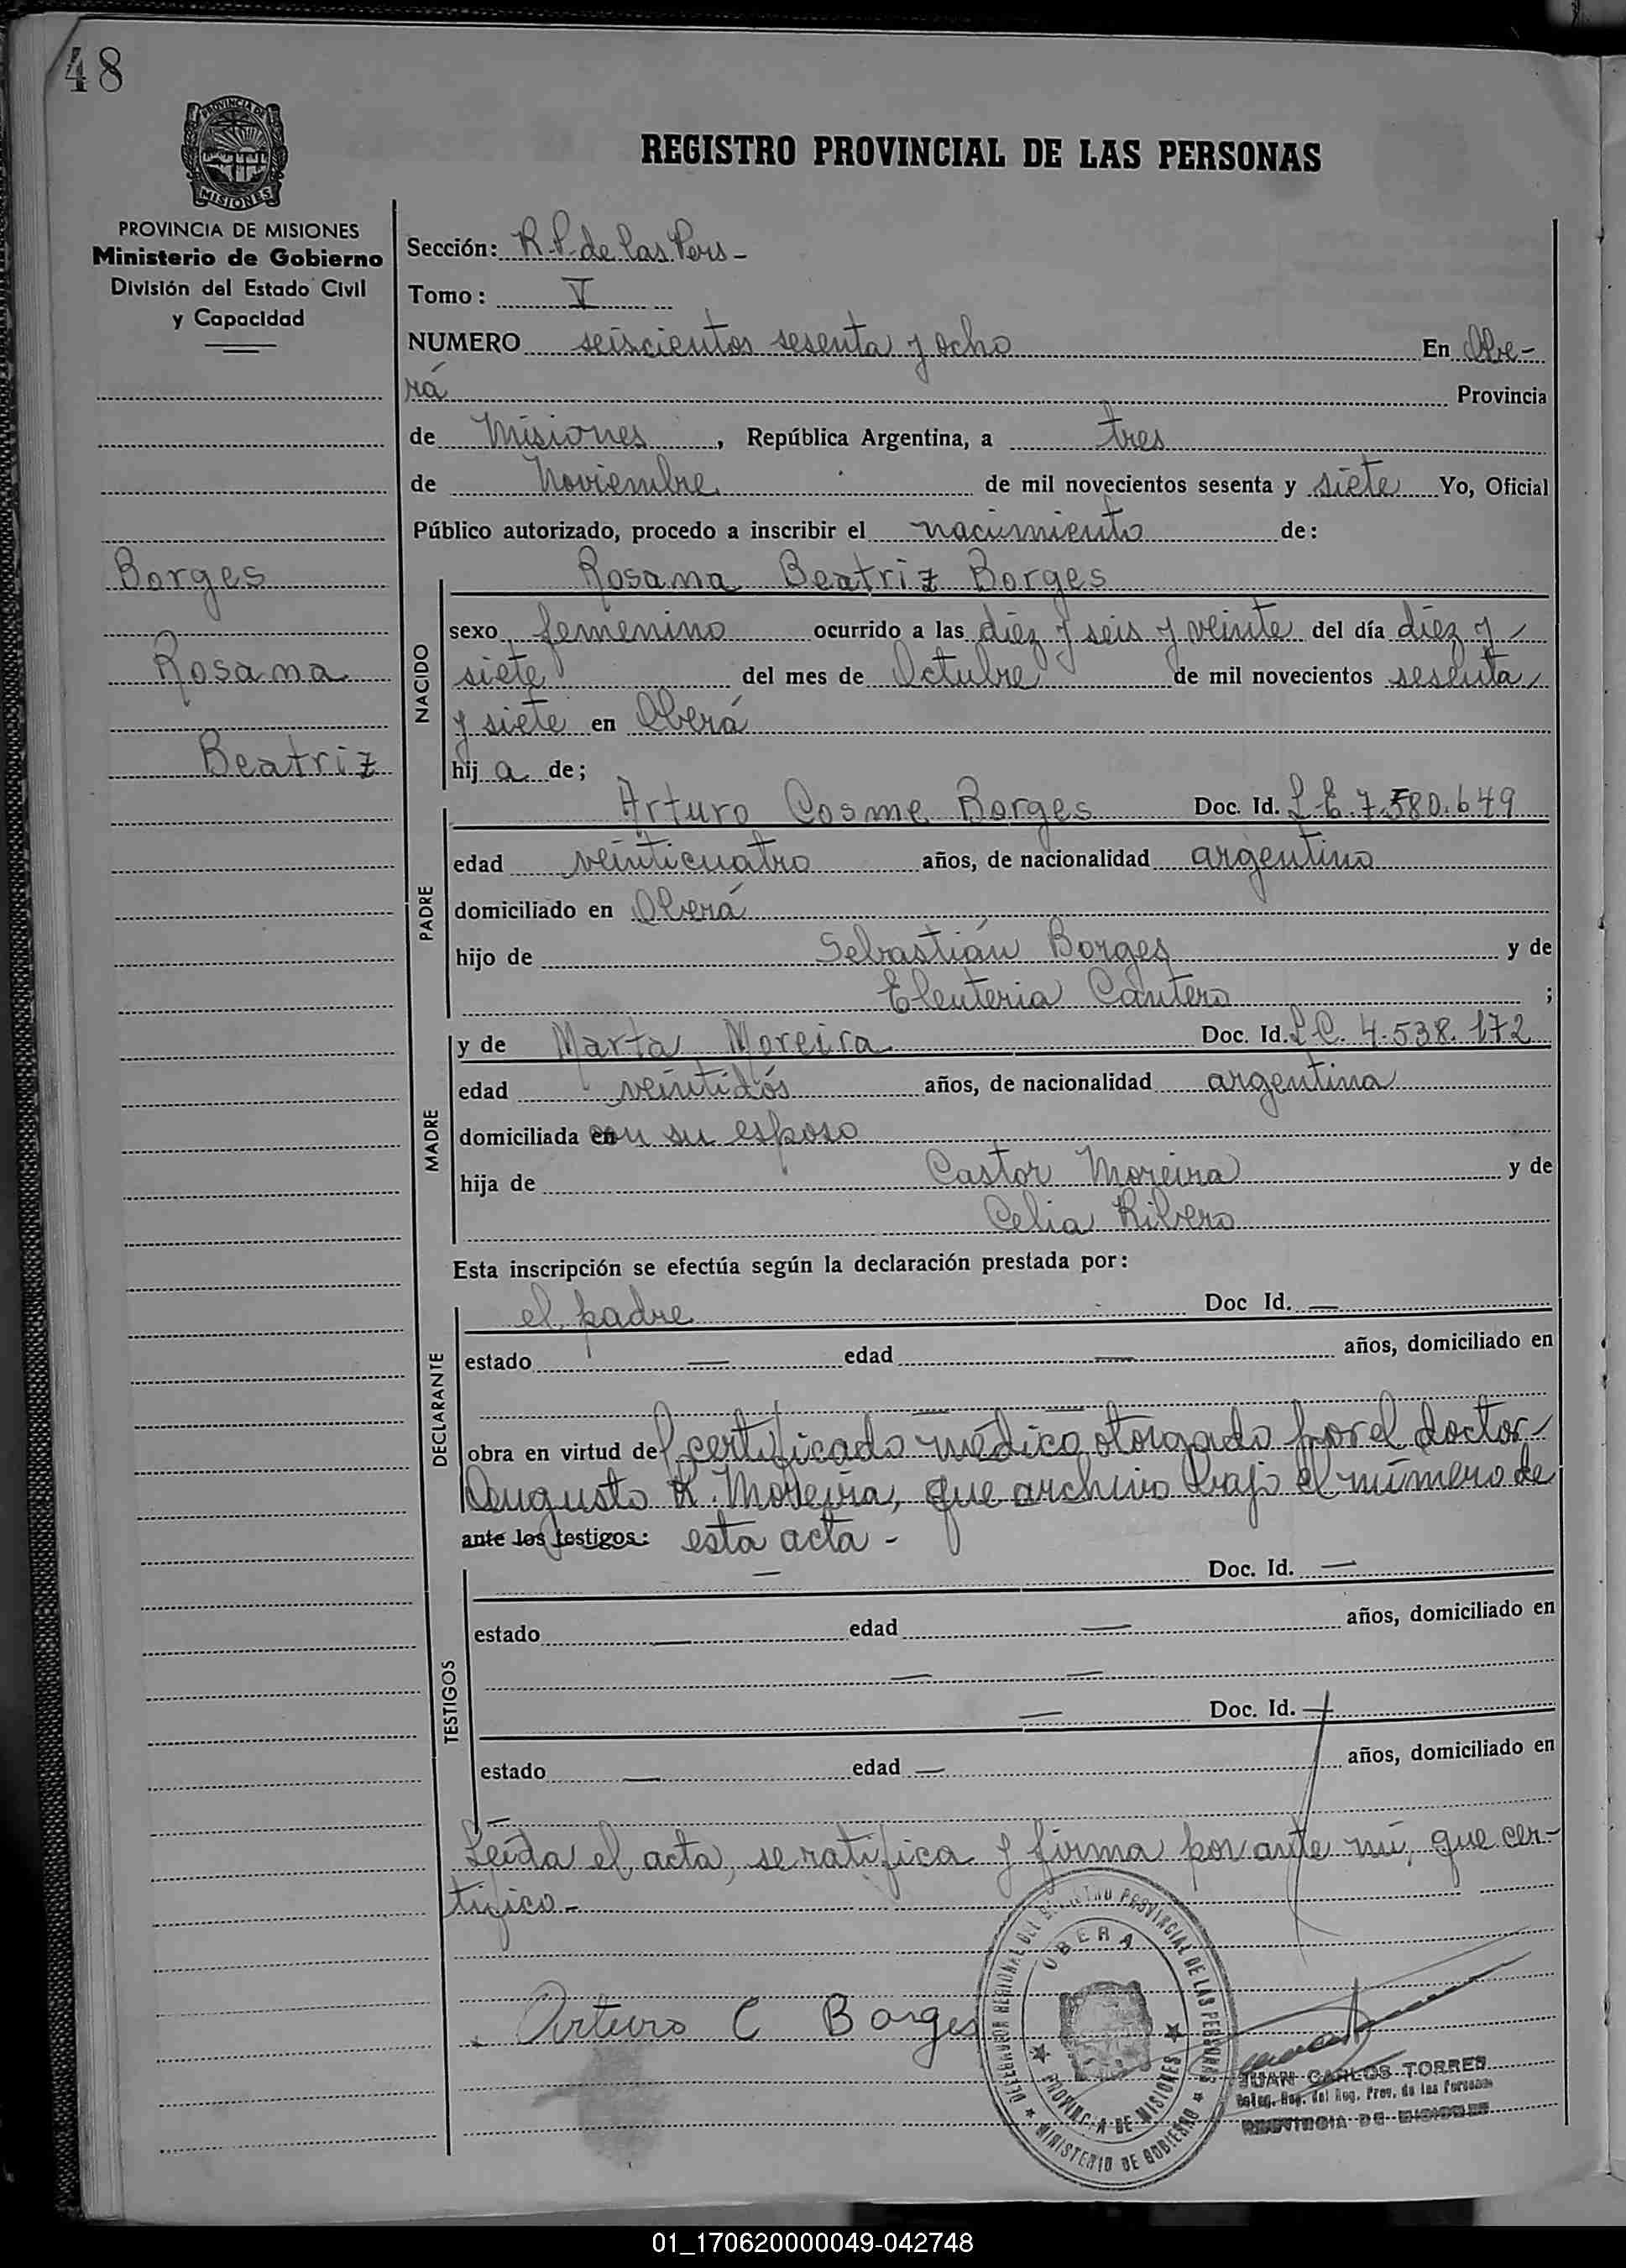 48
PROVINCIA DE
MISIONES
REGISTRO PROVINCIAL DE LAS PERSONAS
PROVINCIA DE MISIONES
Ministerio de Gobierno
División del Estado Civil
y Capacidad
Sección: R.P. de las Pers -
Tomo: V
NUMERO seiscientos sesenta y ocho En Obe-
rá Provincia
de Misiones, República Argentina, a tres
de Noviembre de mil novecientos sesenta y siete Yo, Oficial
Público autorizado, procedo a inscribir el nacimiento de:
Borges
Rosana
Beatriz
Rosana Beatriz Borges
NACIDO
sexo femenino ocurrido a las diez y seis y veinte del día diez y
siete del mes de Octubre de mil novecientos sesenta
y siete en Oberá
hij a de;
PADRE
Arturo Cosme Borges Doc. Id. L.E. 7.580.649
edad veinticuatro años, de nacionalidad argentino
domiciliado en Oberá
hijo de Sebastián Borges y de
Eleuteria Cantero ;
MADRE
y de Marta Moreira Doc. Id. L.C. 4.538.172
edad veintidós años, de nacionalidad argentina
domiciliada con su esposo
hija de Castor Moreira y de
Celia Ribero
Esta inscripción se efectúa según la declaración prestada por:
DECLARANTE
el padre Doc Id. —
estado — edad — años, domiciliado en
— —
obra en virtud del certificado médico otorgado por el doctor
Augusto R. Moreira, que archivo bajo el número de
ante los testigos: esta acta -
TESTIGOS
— Doc. Id. —
estado — edad — años, domiciliado en
— —
— Doc. Id. —
estado — edad — años, domiciliado en
—
Leída el acta, se ratifica y firma por ante mí, que cer-
tifico -
Arturo C Borges
DELEGADOR REGIONAL DEL REGISTRO PROVINCIAL DE LAS PERSONAS
OBERA
PROVINCIA DE MISIONES
MINISTERIO DE GOBIERNO
JUAN CARLOS TORRES
Deleg. Reg. del Reg. Prov. de las Personas
PROVINCIA DE MISIONES
01_170620000049-042748